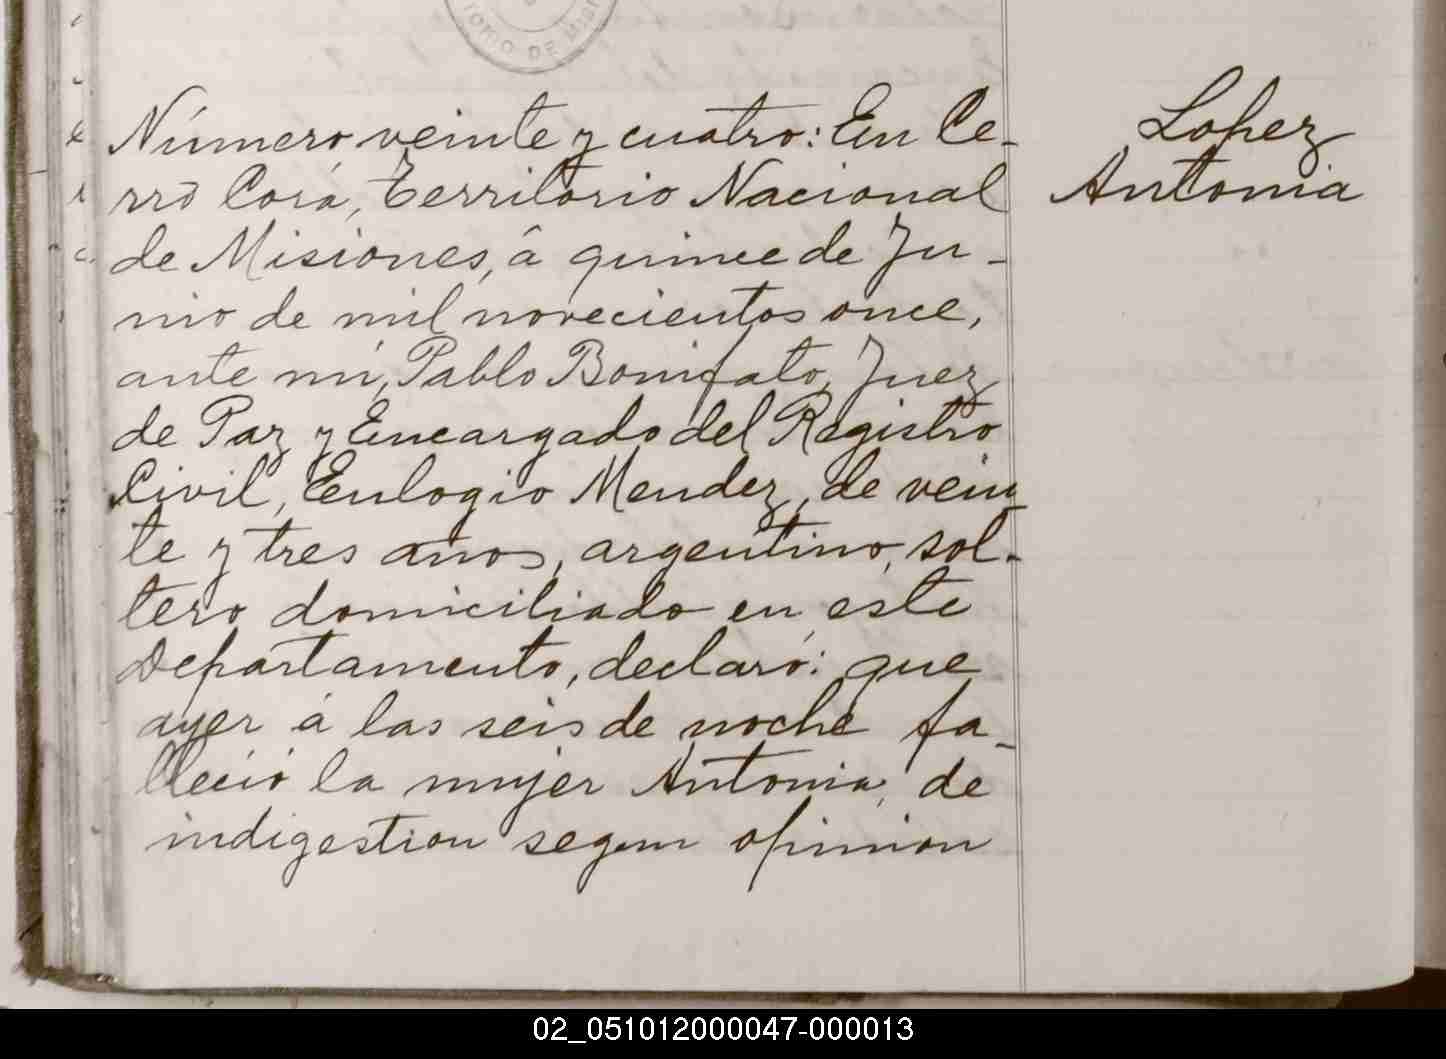 TORIO DE MISI
Lopez
Antonia
Número veinte y cuatro: En Ce-
rro Corá, Territorio Nacional
de Misiones, á quince de Ju-
nio de mil novecientos once,
ante mí, Pablo Bonifato, Juez
de Paz y Encargado del Registro
Civil, Eulogio Mendez, de vein
te y tres anos, argentino, sol-
tero domiciliado en este
Departamento, declaró: que
ayer á las seis de noche fa-
lleció la mujer Antonia, de
indigestion segun opinion
02_051012000047-000013